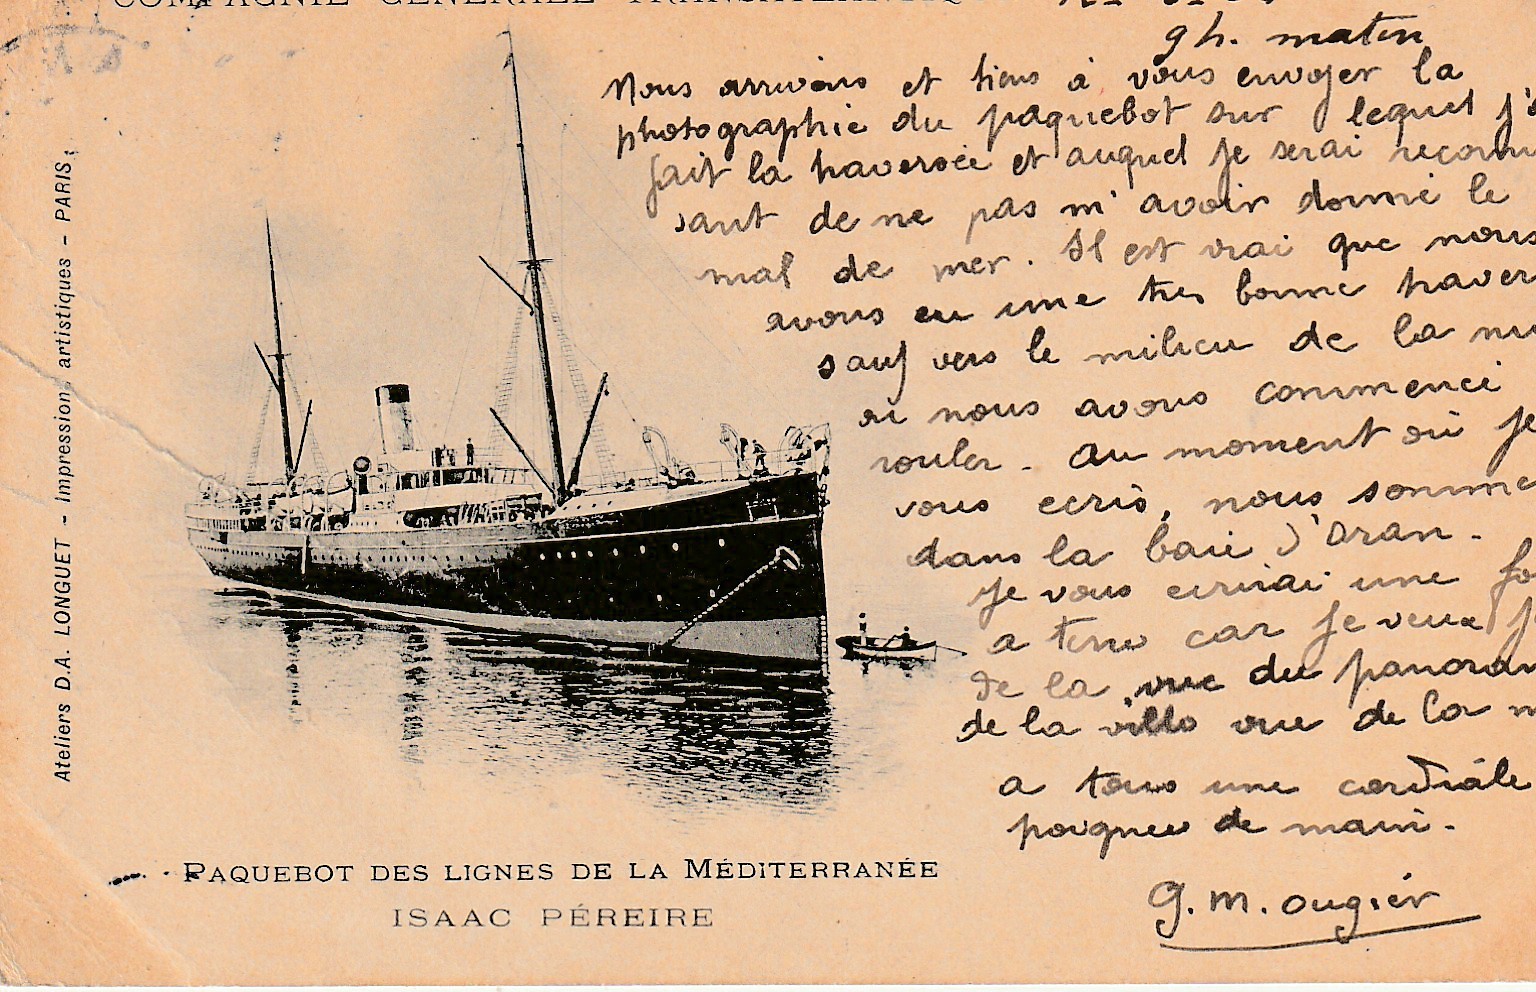 COMPAGNIE GENERALE TRANSATLANTIQU
9h. matin
Nous arrivons et tiens à vous envoyer la
photographie du paquebot sur lequel j'
fait la traversée et auquel je serai reconn
sant de ne pas m'avoir donné le
mal de mer. Il est vrai que nous
avons eu une très bonne traver
sauf vers le milieu de la nu
où nous avons commencé
rouler. Au moment où je
vous ecris, nous somme
dans la baie d'Oran.
Je vous ecrirai une fo
a terre car je veux j
de la vue du panoram
de la ville vue de la m
a tous une cordiale
poignee de main.
G. M. Ougier
Ateliers D.A. LONGUET - Impressions artistiques - PARIS.
PAQUEBOT DES LIGNES DE LA MÉDITERRANÉE
ISAAC PÉREIRE